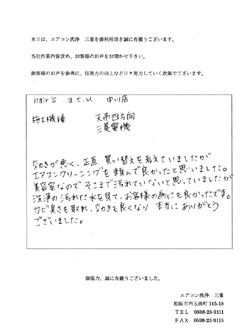 本日は、エアコン洗浄 三重を御利用頂き誠に有難うございます。
当社作業内容含め、お客様のお声をお聞かせ下さい。
御客様のお声を参考に、技術力の向上など日々努力していく次第でございます。
hair's a.t.u 中川店
施工機種 天吊四方向
三菱重機
効きが悪く、正直 買い替えを考えていましたが
エアコンクリーニングを頼んで良かったと思いました。
美容室なのでそこまで汚れていないと思っていましたが
洗浄の汚れた水を見て、お客様の為にも良かったです。
カビ臭さも取れ、効きも良くなり 本当にありがとう
ございました。
御協力、誠に有難うございました。
エアコン洗浄 三重
松阪市内五曲町115-18
TEL 0598-23-9111
FAX 0598-23-9115